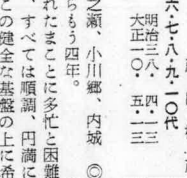 六・七・八・九・一〇代
明治三八・四・一三
大正一〇・五・一三
之瀬、小川郷、内城 ◎
れたまことに多忙と困難
らもう四年。
、すべては順調、円満に
この健全な基盤の上に希